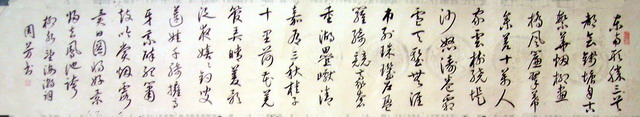 东南形胜三吴
都会钱塘自古
繁华烟柳画
桥风帘翠幕
参差十万人
家云树绕堤
沙怒涛卷霜
雪天堑无涯
市列珠玑户盈
罗绮竞豪奢
重湖叠巘清
嘉有三秋桂子
十里荷花羌
管弄晴菱歌
泛夜嬉嬉钓叟
莲娃千骑拥高
牙乘醉听箫
鼓吟赏烟霞
异日图将好景
归去凤池夸
柳永望海潮词
周芳书